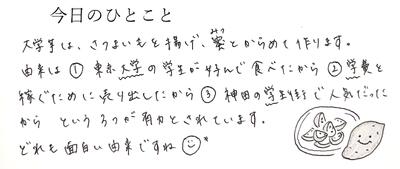 今日のひとこと
みつ
大学芋は、さつまいもを揚げ、蜜とからめて作ります。
由来は ① 東京大学の学生が好んで食べたから ② 学費を
稼ぐために売り出したから ③ 神田の学生街で人気だった
から という3つが有力とされています。
どれも面白い由来ですね